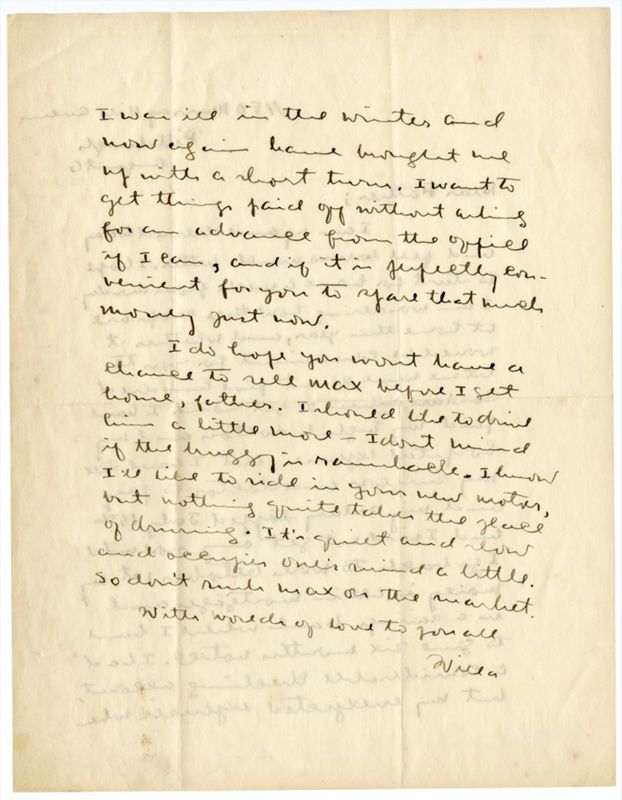 I was ill in the winter and
now again have brought me
up with a short turn. I want to
get things paid off without asking
for an advance from the office
if I can, and if it is perfectly con-
venient for you to spare that much
money just now.
I do hope you wont have a
chance to sell Max before I get
home, father. I should like to drive
him a little more — I don't mind
if the buggy is ramshackle. I know
I'll like to ride in your new motor,
but nothing quite takes the place
of driving. It's quiet and slow
and occupies one's mind a little.
So don't rush Max on the market.
With worlds of love to you all
Willa